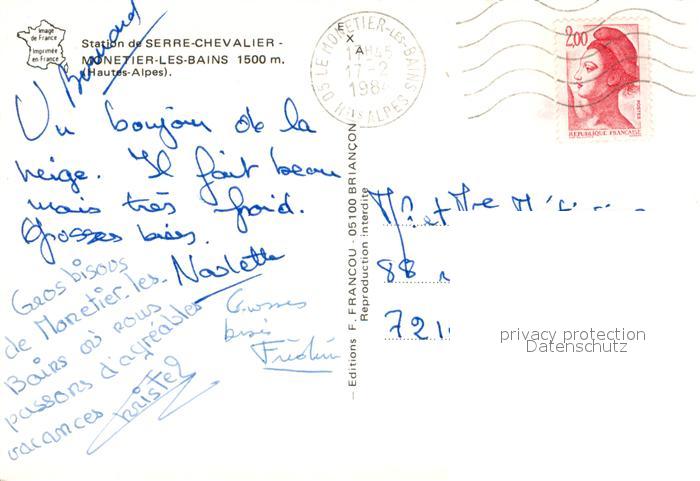 Image
de France
Imprimée
en France
Station de SERRE-CHEVALIER -
MONETIER-LES-BAINS 1500 m.
(Hautes-Alpes).
Bernard
Un bonjour de la
neige. Il fait beau
mais très froid.
Grosses bises.
Gros bisous
de Monetier-les-
Bains où nous
passons d'agréables
vacances
Grosses
bises
05 LE MONETIER-LES-BAINS
17-2
198
HTES ALPES
2,00
POSTES
REPUBLIQUE FRANÇAISE
Editions F. FRANCOU - 05100 BRIANÇON
Reproduction interdite
Mr et Mme
88
721
privacy protection
Datenschutz